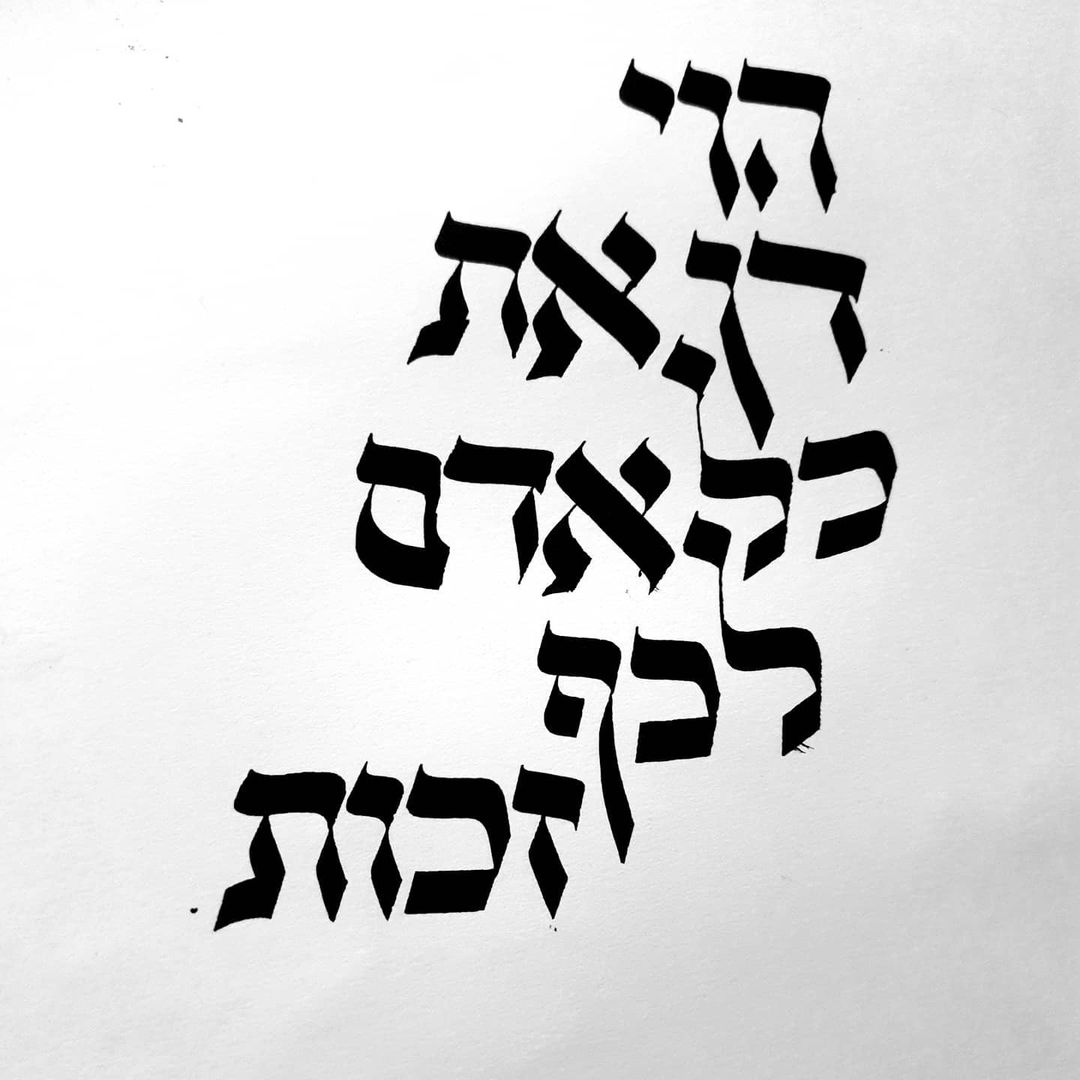 הוי
דן את
כל אדם
לכף
זכות